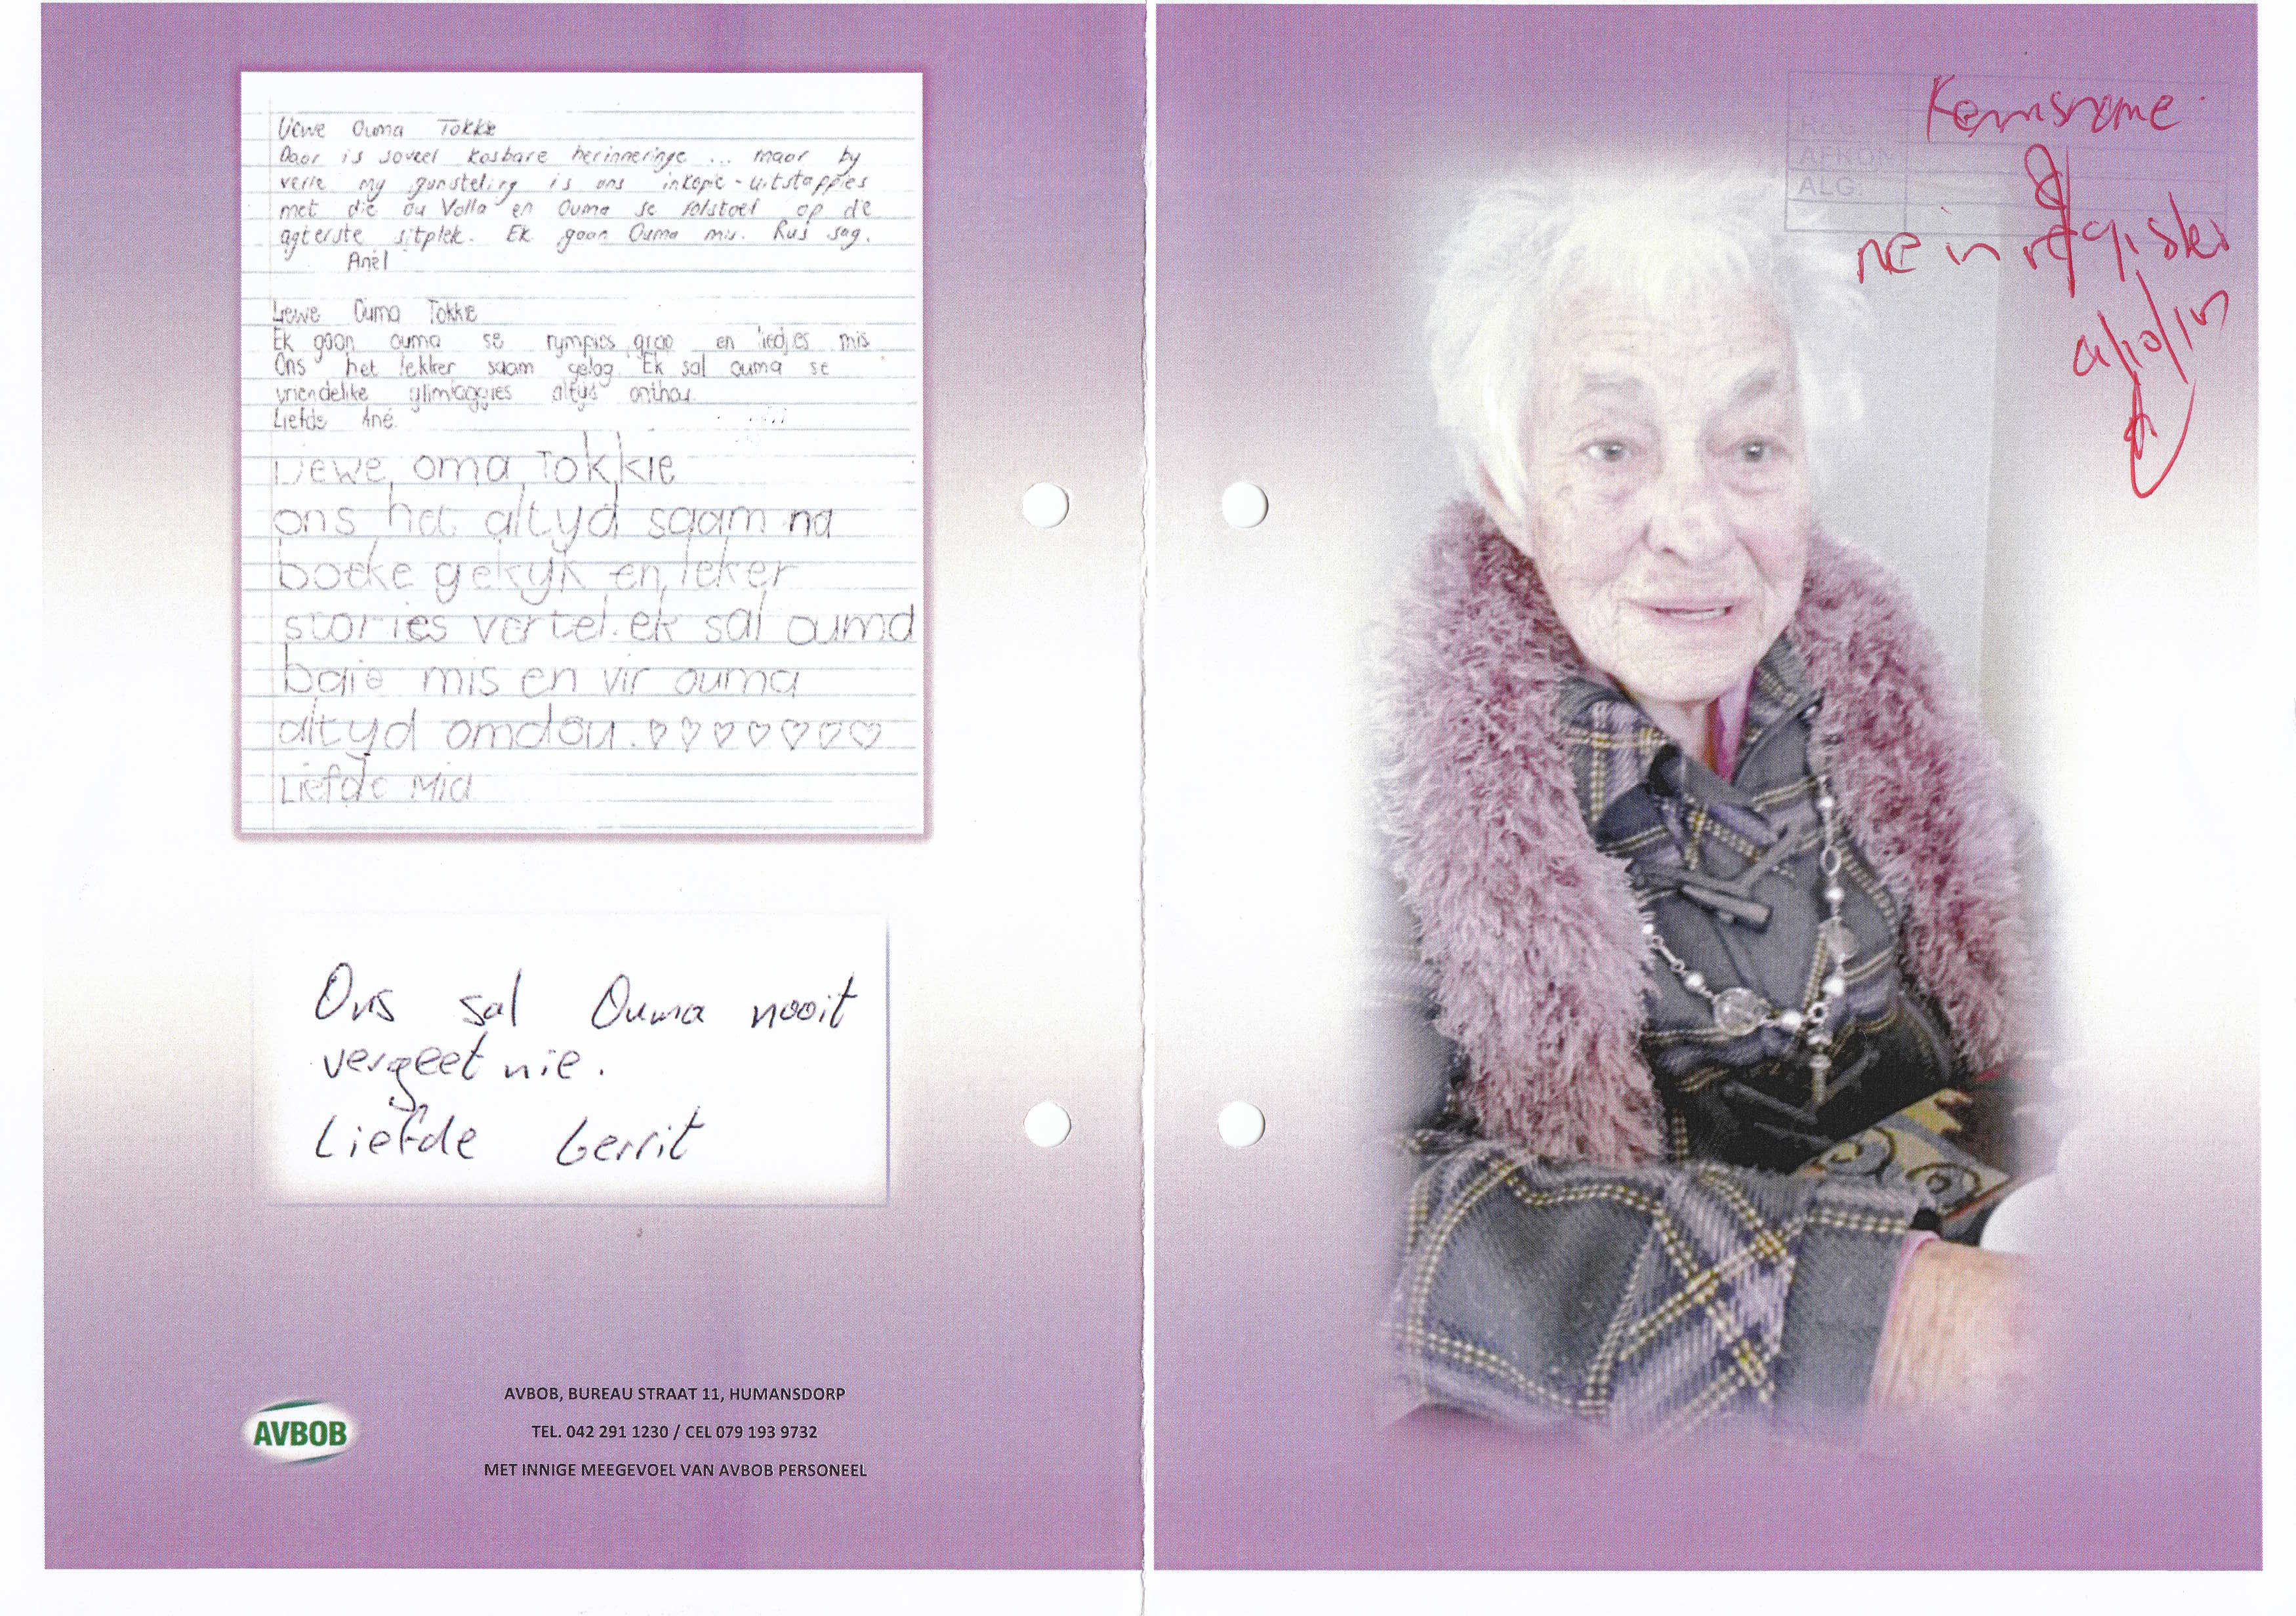 Liewe Ouma Tokkie
Daar is soveel kosbare herinneringe ... maar by
verre my gunsteling is ons inkopie-uitstappies
met die ou Volla en Ouma se rolstoel op die
agterste sitplek. Ek gaan Ouma mis. Rus sag.
Anèl
Liewe Ouma Tokkie
Ek gaan ouma se rympies, grap en liedjes mis
Ons het lekker saam gelag. Ek sal ouma se
vriendelike glimlaggies altyd onthou.
Liefde Ané.
Liewe oma Tokkie
ons het altyd saam na
boeke gekyk en leker
stories vertel. ek sal ouma
baie mis en vir ouma
altyd omdou. ♡♡♡♡♡♡♡
Liefde Mia
Ons sal Ouma nooit
vergeet nie.
Liefde Gerrit
AVBOB
AVBOB, BUREAU STRAAT 11, HUMANSDORP
TEL. 042 291 1230 / CEL 079 193 9732
MET INNIGE MEEGEVOEL VAN AVBOB PERSONEEL
REG
AFKOM
ALG.
nie in register